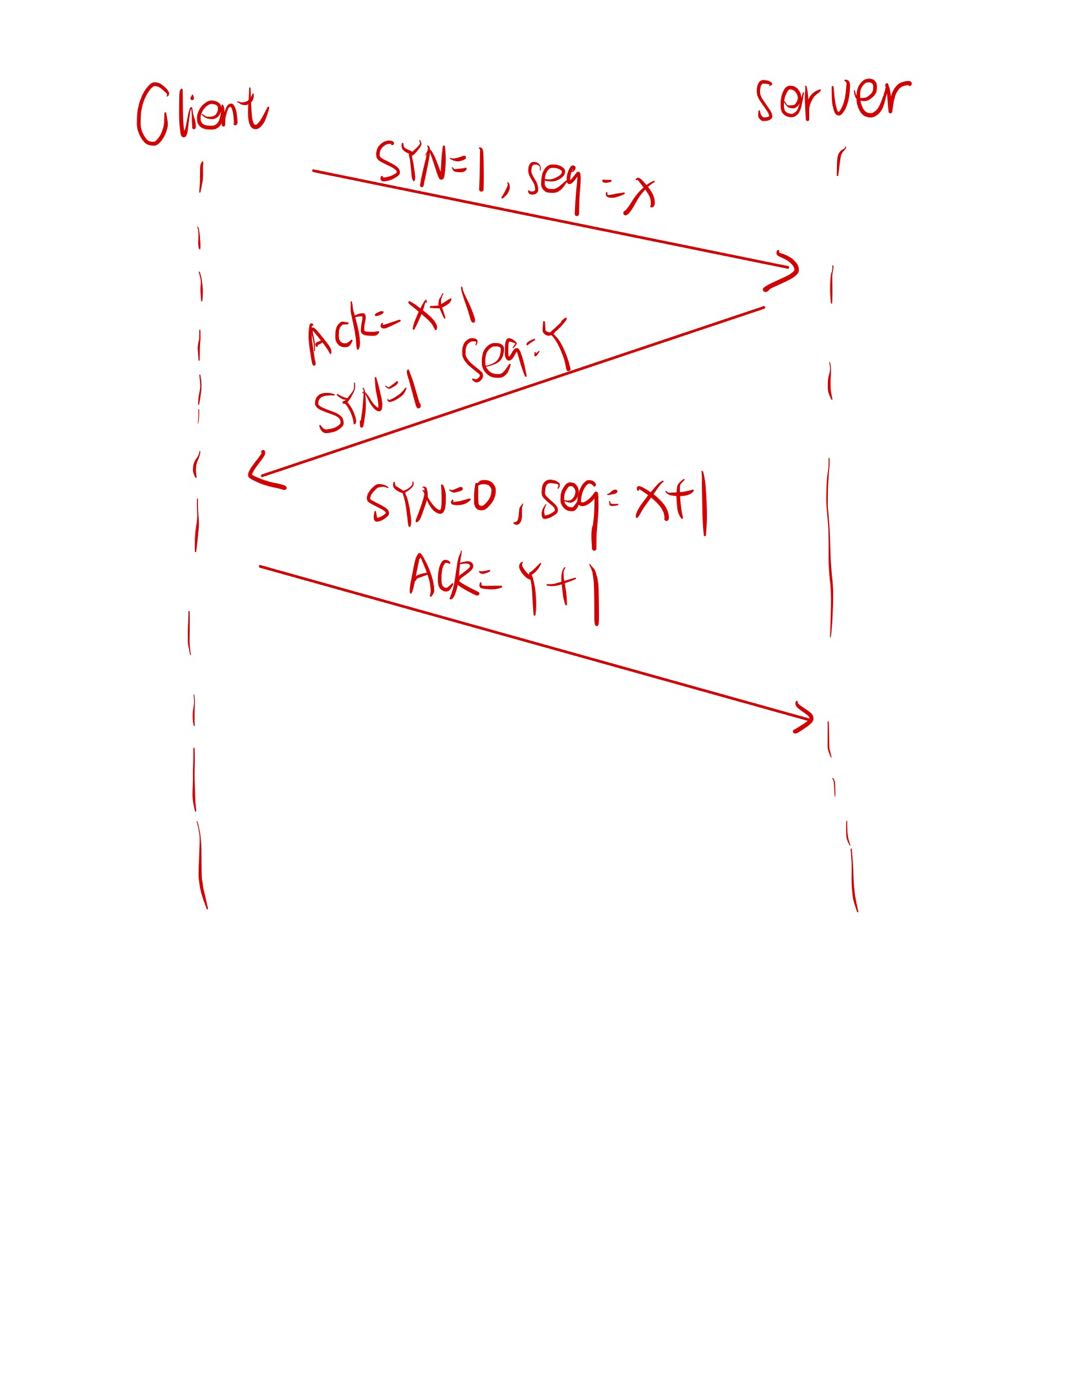 Client
server
SYN=1, seq=x
Ack=x+1
seq=Y
SYN=1
SYN=0, seq=x+1
Ack=Y+1